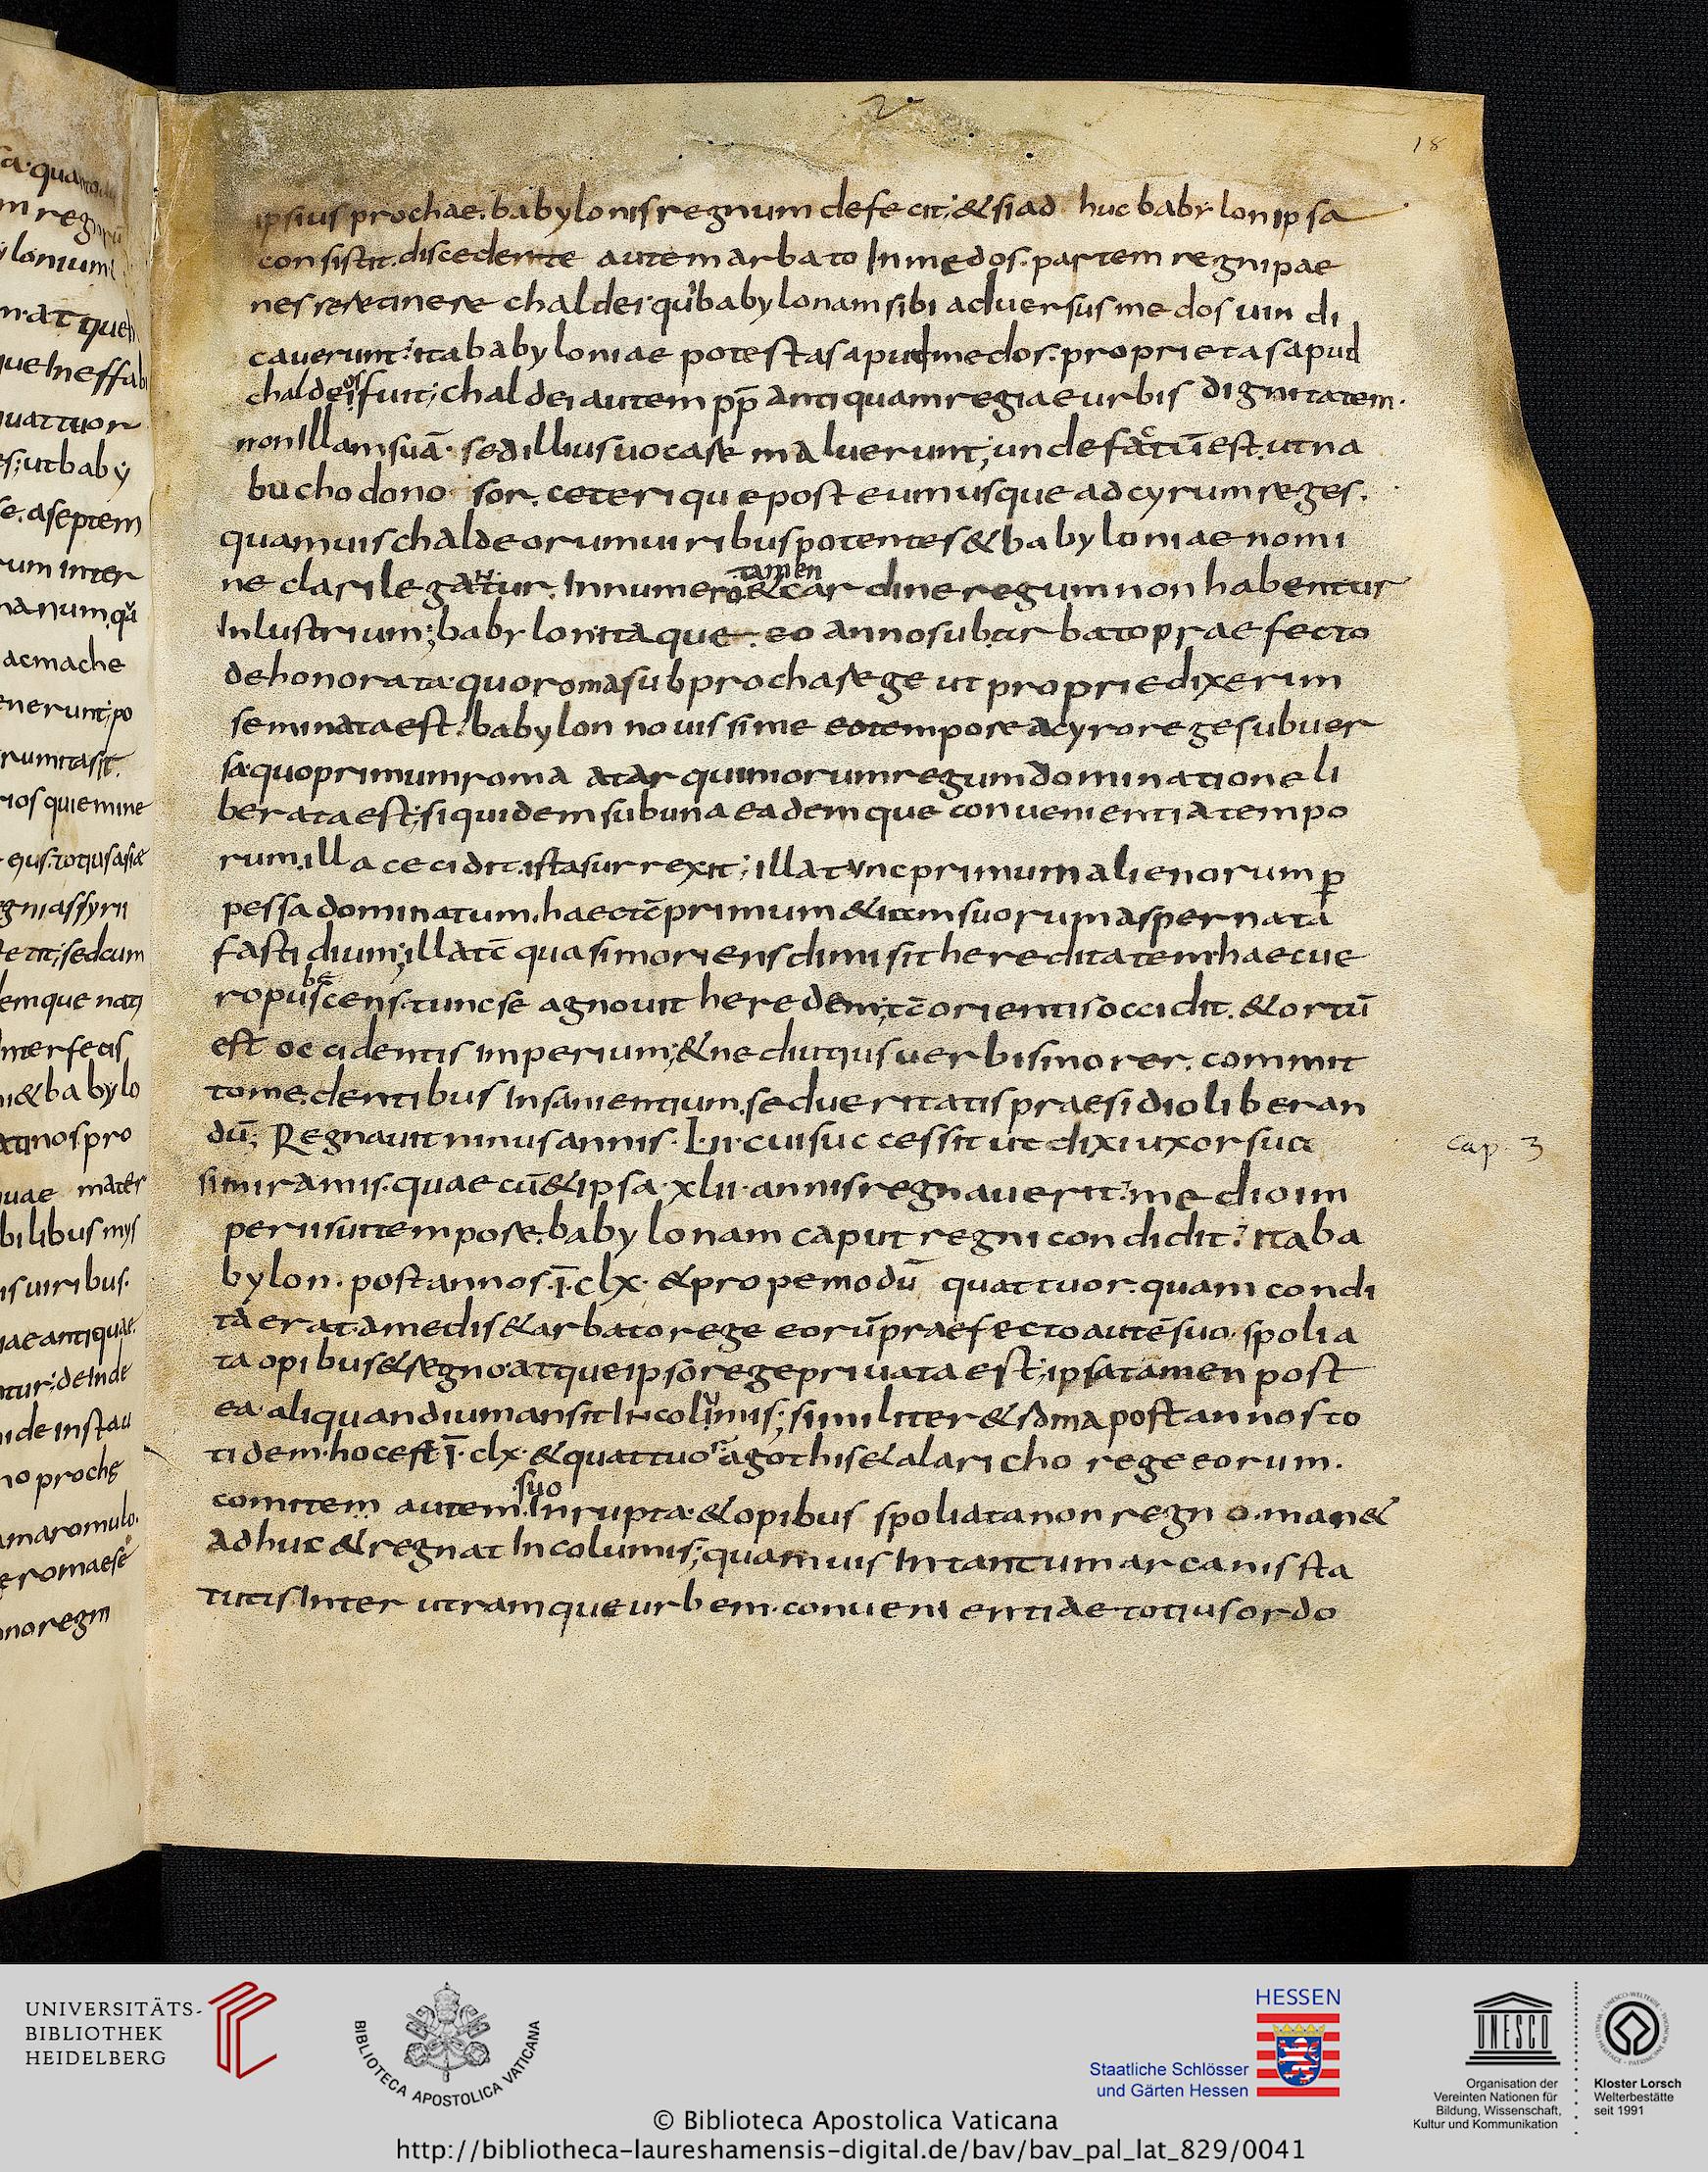 18
ipsius prochae. babylonis regnum defecit; & si ad huc babylon ipsa
consistit. discedente autem arbato In medos. partem regni pae
nes se retinere chaldei. qui babylonam sibi aduersus medos uin di
cauerunt. ita babyloniae potestas apud medos. proprietas apud
chaldeos fuit; chaldei autem pp̄ antiquam regiae urbis dignitatem.
non Illam suā. sed illius uocare maluerunt; unde factū est. ut na
buchodono sor. ceterique post eum usque ad cyrum reges.
quamuis chaldeorum uiribus potentes & babyloniae nomi
ne clari legantur. In numero tamen & cardine regum non habentur
Inlustrium; babylon itaque eo anno sub arbato praefecto
dehonorata. quo roma sub procha rege ut proprie dixerim
seminata est. babylon nouissime eo tempore a cyro rege subuer
sa. quo primum roma a tarquiniorum regum dominatione li
berata est; siquidem sub una eademque conuenientia tempo
rum. illa cecidit. ista surrexit; illa tunc primum alienorum p̱
pessa dominatum. haec tc̄ primum & item suorum aspernata
fastidium; illa tc̄ quasi moriens dimisit hereditatem. haec ue
ro pubescens. tunc se agnouit heredem; tc̄ orientis occidit. & ortū
est occidentis imperium; & ne diutius uerbis morer. commit
to me dentibus Insanientium. sed ueritatis praesidio liberan
dū; Regnauit ninus annis. L.II. cui successit ut dixi uxor sua
simiramis. quae cū & ipsa. xlii. annis regnauerit. medio im
perii sui tempore. babylonam caput regni condidit. Ita ba
bylon. post annos. Ī. clx. & propemodū quattuor. quam condi
ta erat. a medis & arbato rege eorū praefecto autē suo. spolia
ta opibus & regno. atque ipso rege priuata est; ipsa tamen post
ea. aliquandiu mansit In columis; similiter & roma post annos to
tidem. hoc est Ī. clx. & quattuor a gothis & alaricho rege eorum.
comitem autem suo Inrupta. & opibus spoliata non regno. man&
adhuc & regnat Incolumis; quamuis In tantum arcanis sta
tutis. Inter utramque urbem. conuenientiae totius ordo
cap. 3
UNIVERSITÄTS-
BIBLIOTHEK
HEIDELBERG
BIBLIOTECA APOSTOLICA VATICANA
HESSEN
Staatliche Schlösser
und Gärten Hessen
UNESCO
Organisation der
Vereinten Nationen für
Bildung, Wissenschaft,
Kultur und Kommunikation
Kloster Lorsch
Welterbestätte
seit 1991
© Biblioteca Apostolica Vaticana
http://bibliotheca-laureshamensis-digital.de/bav/bav_pal_lat_829/0041